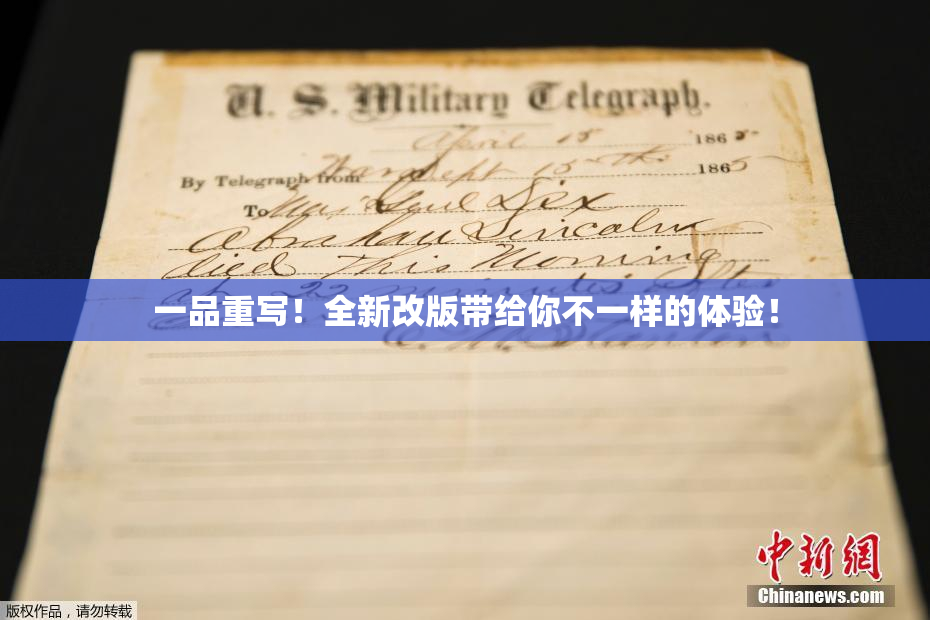 U. S. Military Telegraph.
April 15 1865
By Telegraph from War Dept 15th 1865
To Maj Genl Dix
Abraham Lincoln
died This Morning
at 22 minutes after
一品重写！全新改版带给你不一样的体验！
E. M. Stanton
中新網
Chinanews.com
版权作品，请勿转载